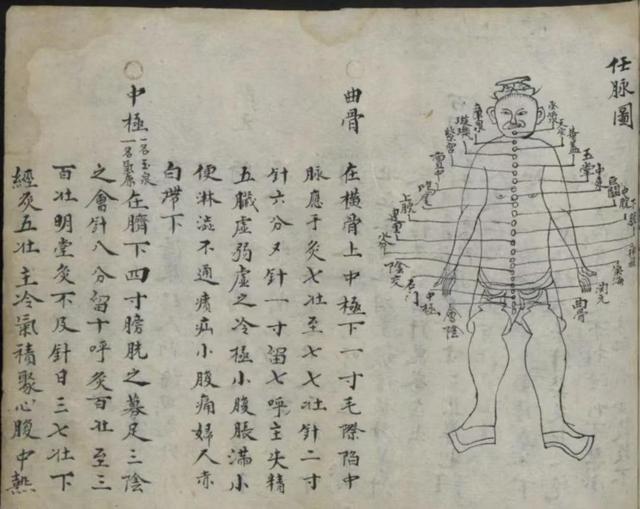 任脉圖
天突
華蓋
玉堂
中庭
巨闕
中脘
氣海
関元
曲骨
廉泉
璇璣
紫宮
膻中
鳩尾
上脘
建里
水分
陰交
石門
中極
會陰
曲骨 在橫骨上中極下一寸毛際陷中
脉應于灸七壮至七七壮針二寸
針六分又針一寸留七呼主失精
五臓虛弱虛之冷極小腹脹滿小
便淋澁不通㿉疝小腹痛婦人赤
白帶下
中極 一名玉泉 一名氣原 在臍下四寸膀胱之募足三陰
之會針八分留十呼灸百壮至三
百壮明堂灸不及針日三七壮下
經灸五壮主冷氣積聚心腹中熱